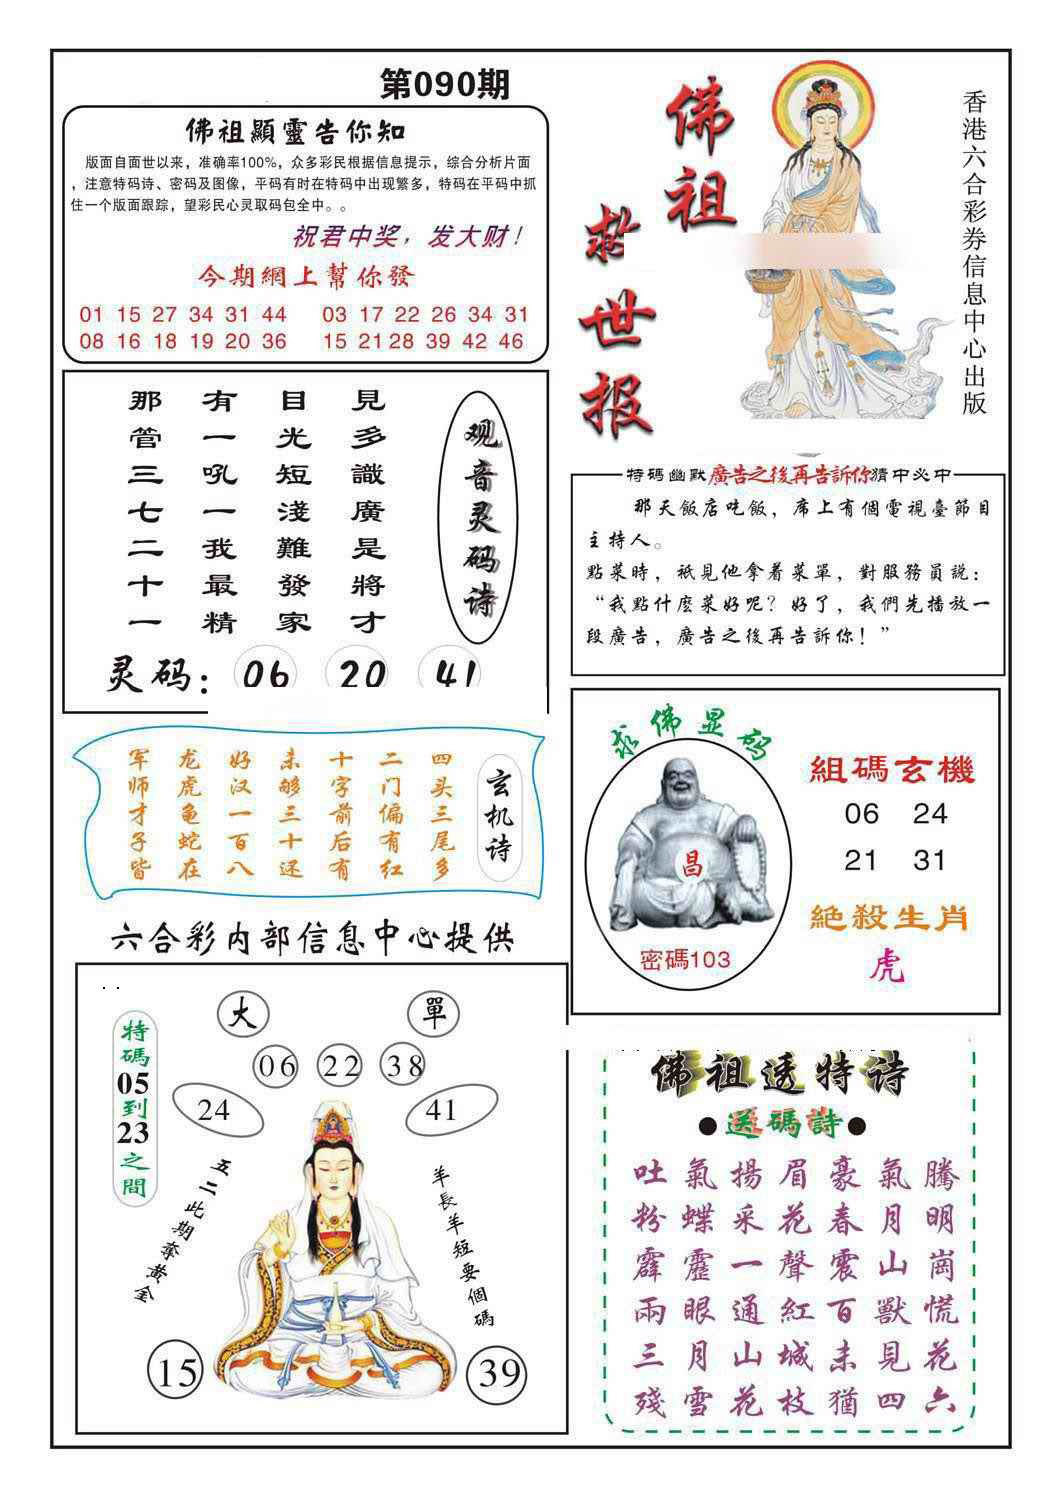 第090期
佛祖顯靈告你知
版面自面世以来，准确率100%，众多彩民根据信息提示，综合分析片面
，注意特码诗、密码及图像，平码有时在特码中出现繁多，特码在平码中抓
住一个版面跟踪，望彩民心灵取码包全中。。
祝君中奖，发大财！
今期網上幫你發
01 15 27 34 31 44
03 17 22 26 34 31
08 16 18 19 20 36
15 21 28 39 42 46
佛祖
救世报
香港六合彩券信息中心出版
观音灵码诗
見多識廣是將才
目光短淺難發家
有一吼一我最精
那管三七二十一
灵码：06 20 41
特碼幽默廣告之後再告訴你猜中必中
那天飯店吃飯，席上有個電視臺節目
主持人。
點菜時，祗見他拿着菜單，對服務員説：
“我點什麼菜好呢？好了，我們先播放一
段廣告，廣告之後再告訴你！”
玄机诗
四头三尾多
二门偏有红
十字前后有
未够三十还
好汉一百八
龙虎龟蛇在
军师才子皆
求佛显码
昌
密碼103
組碼玄機
06 24
21 31
絕殺生肖
虎
六合彩内部信息中心提供
特碼05到23之間
大
單
06 22 38
24
41
五二此期奪黃金
羊長羊短要個碼
15
39
佛祖透特诗
●送碼詩●
吐氣揚眉豪氣騰
粉蝶采花春月明
霹靂一聲震山崗
兩眼通紅百獸慌
三月山城未見花
殘雪花枝猶四六